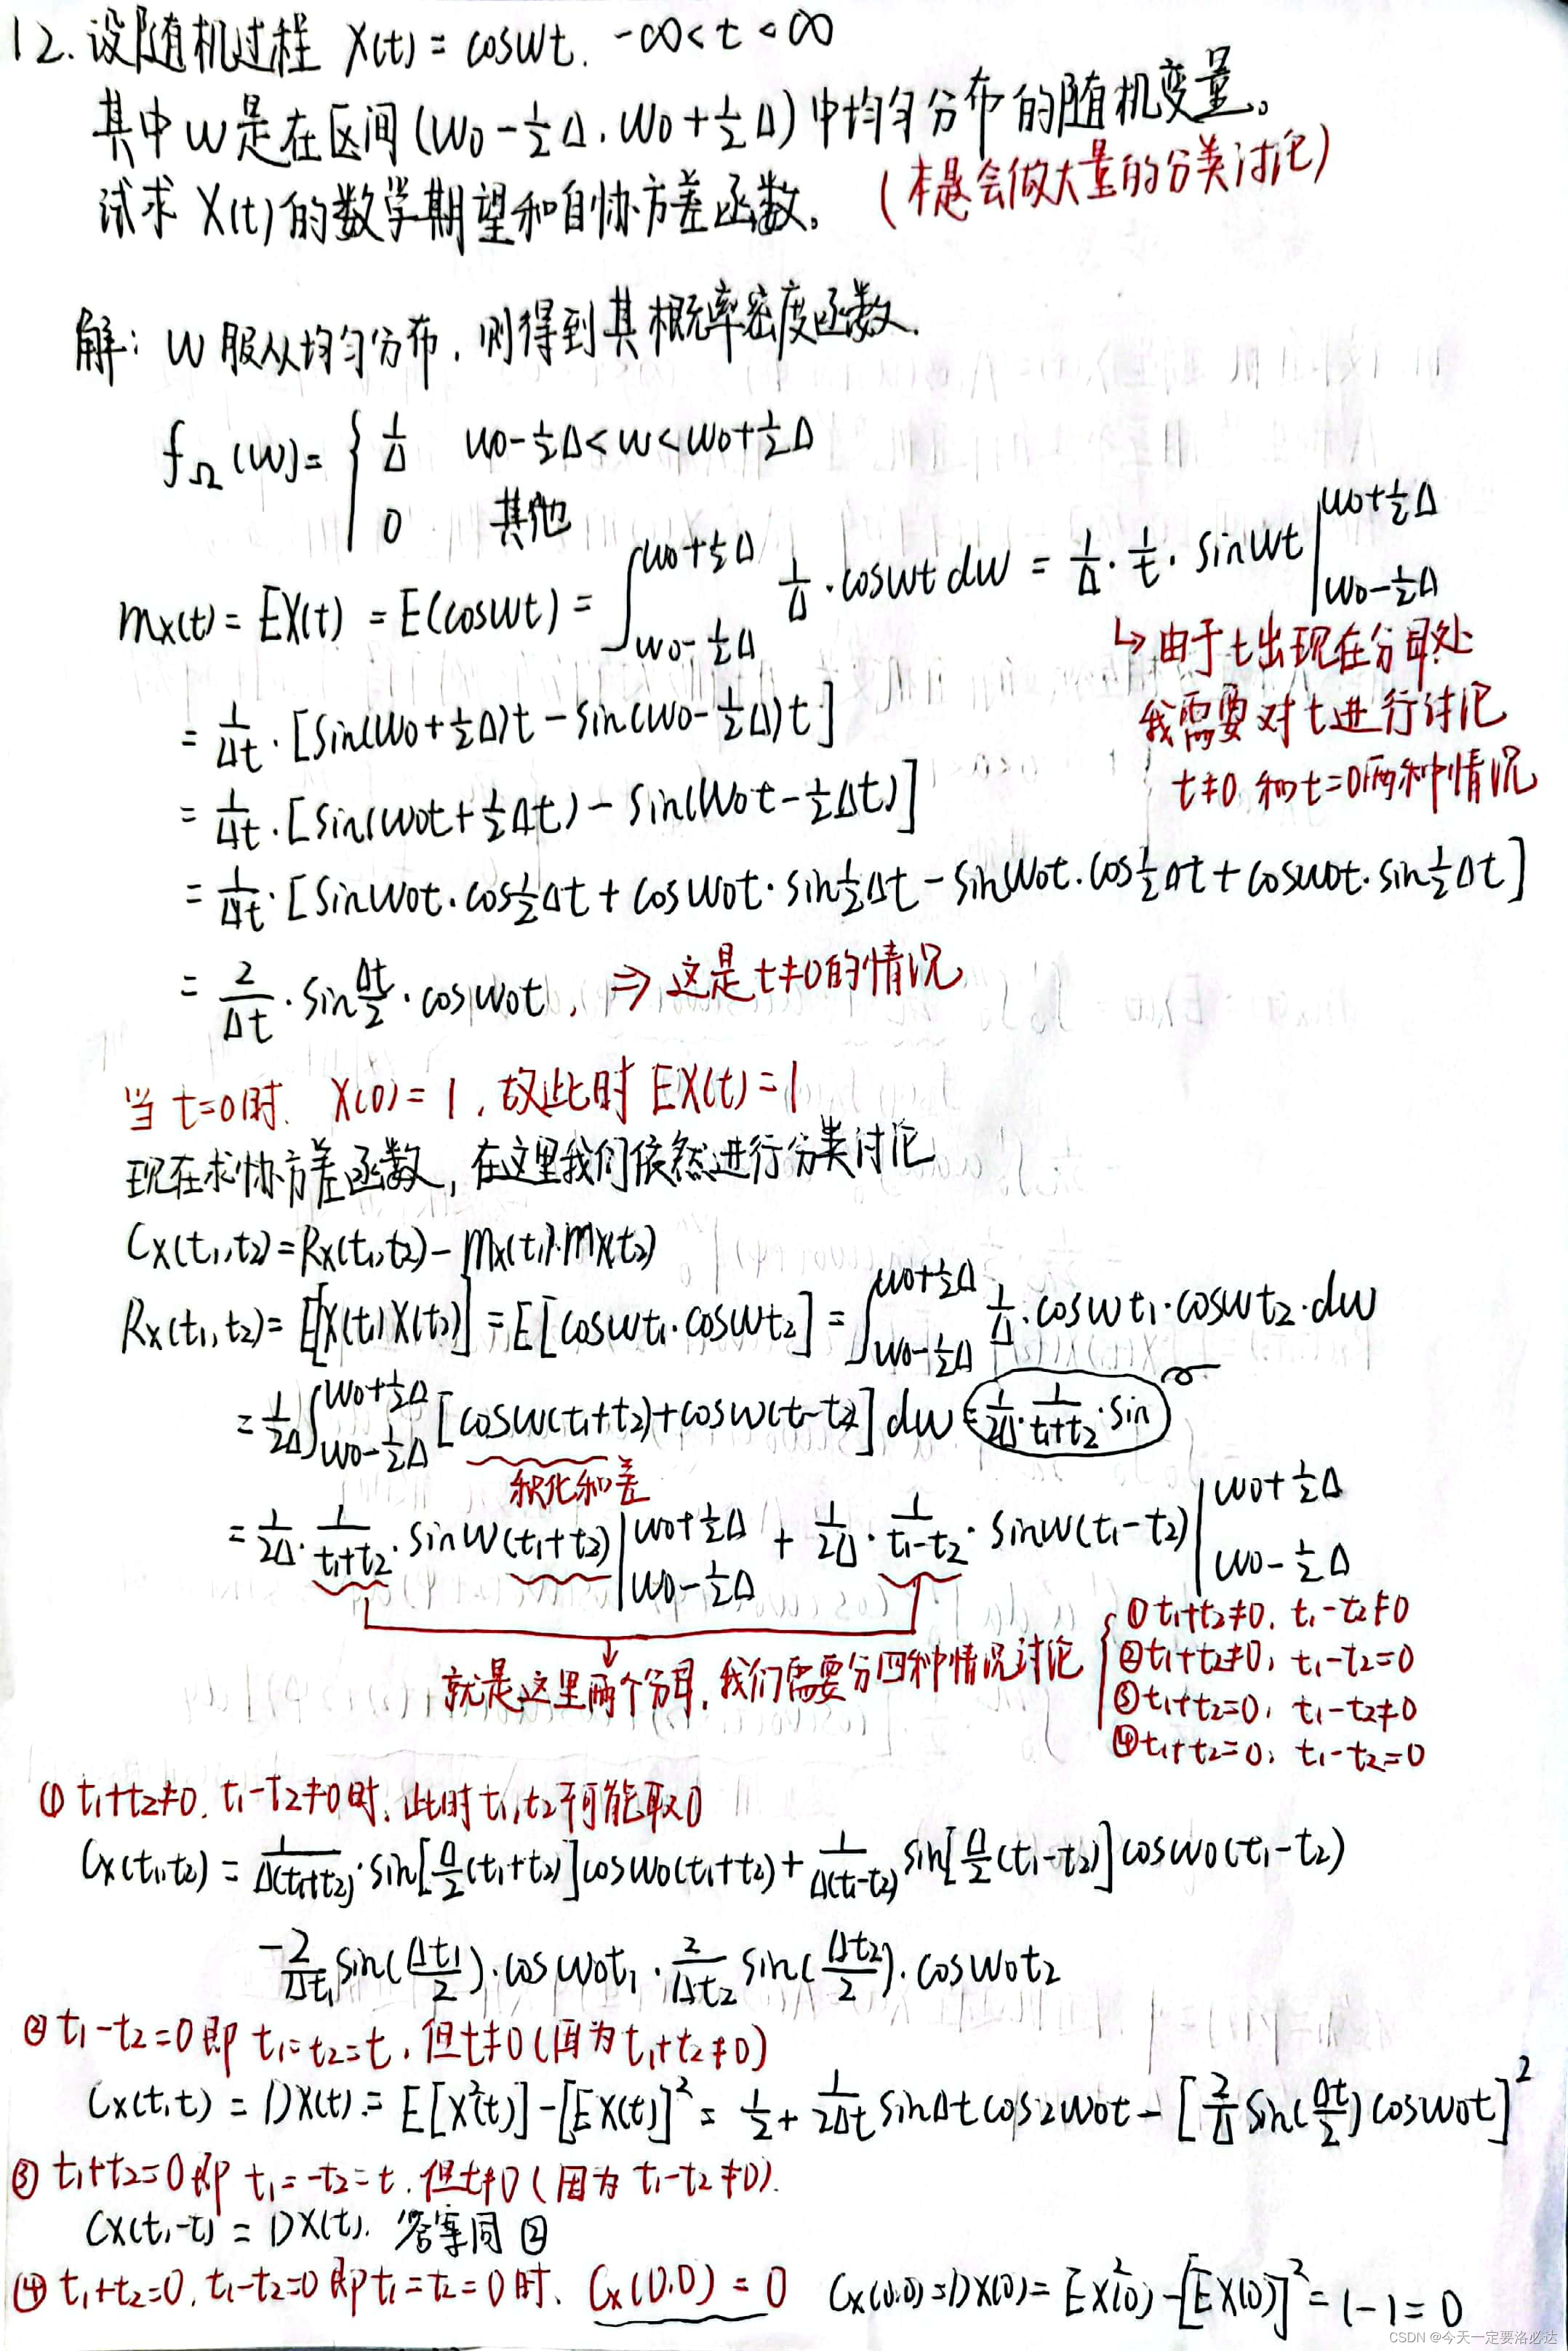 12. 设随机过程 X(t) = cosωt. -∞<t<∞
其中ω是在区间(ω0-½Δ, ω0+½Δ)中均匀分布的随机变量。
试求 X(t)的数学期望和自协方差函数。 (本题会做大量的分类讨论)
解: ω服从均匀分布, 则得到其概率密度函数.
fΩ(ω)= { 1/Δ ω0-½Δ<ω<ω0+½Δ
0 其他
mx(t) = EX(t) = E(cosωt) = ∫_{ω0-½Δ}^{ω0+½Δ} 1/Δ·cosωt dω = 1/Δ·1/t·sinωt |_{ω0-½Δ}^{ω0+½Δ}
↳ 由于t出现在分母处
我需要对t进行讨论
t≠0 和t=0两种情况
= 1/Δt·[sin(ω0+½Δ)t - sin(ω0-½Δ)t]
= 1/Δt·[sin(ω0t+½Δt) - sin(ω0t-½Δt)]
= 1/Δt·[sinω0t·cos½Δt + cosω0t·sin½Δt - sinω0t·cos½Δt + cosω0t·sin½Δt]
= 2/Δt·sinΔt/2·cosω0t, ⇒ 这是t≠0的情况
当 t=0时. X(0)=1, 故此时 EX(t)=1
现在求协方差函数, 在这里我们依然进行分类讨论
Cx(t1,t2)=Rx(t1,t2)-mx(t1)·mx(t2)
Rx(t1,t2)= E[X(t1)X(t2)] = E[cosωt1·cosωt2] = ∫_{ω0-½Δ}^{ω0+½Δ} 1/Δ·cosωt1·cosωt2·dω
= 1/2Δ ∫_{ω0-½Δ}^{ω0+½Δ} [cosω(t1+t2)+cosω(t1-t2)] dω = 1/2Δ·1/(t1+t2)·sin
积化和差
= 1/2Δ·1/(t1+t2)·sinω(t1+t2) |_{ω0-½Δ}^{ω0+½Δ} + 1/2Δ·1/(t1-t2)·sinω(t1-t2) |_{ω0-½Δ}^{ω0+½Δ}
就是这里两个分母, 我们需要分四种情况讨论
① t1+t2≠0, t1-t2≠0
② t1+t2≠0, t1-t2=0
③ t1+t2=0, t1-t2≠0
④ t1+t2=0, t1-t2=0
① t1+t2≠0, t1-t2≠0时, 此时t1,t2不可能取0
Cx(t1,t2) = 1/Δ(t1+t2)·sin[Δ/2(t1+t2)]cosω0(t1+t2) + 1/Δ(t1-t2) sin[Δ/2(t1-t2)]cosω0(t1-t2)
-2/Δt1 sin(Δt1/2)·cosω0t1·2/Δt2 sin(Δt2/2)·cosω0t2
② t1-t2=0 即 t1=t2=t, 但t≠0 (因为t1+t2≠0)
Cx(t,t) = DX(t) = E[X²(t)]-[EX(t)]² = ½ + 1/2Δt sinΔt cos2ω0t - [2/Δ sin(Δt/2) cosω0t]²
③ t1+t2=0 即 t1=-t2=t, 但t≠0 (因为 t1-t2≠0).
Cx(t,-t) = DX(t). 答案同②
④ t1+t2=0, t1-t2=0 即t1=t2=0时, Cx(0,0)=0 Cx(0,0)=DX(0)=EX²(0)-[EX(0)]²=1-1=0
CSDN @今天一定要洛必达